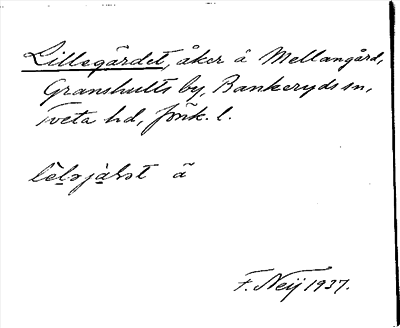 Lillegärdet, åker å Mellangård,
Granshults by, Bankeryds sn,
Tveta hd, Jönk. l.
å
F. Neij 1937.